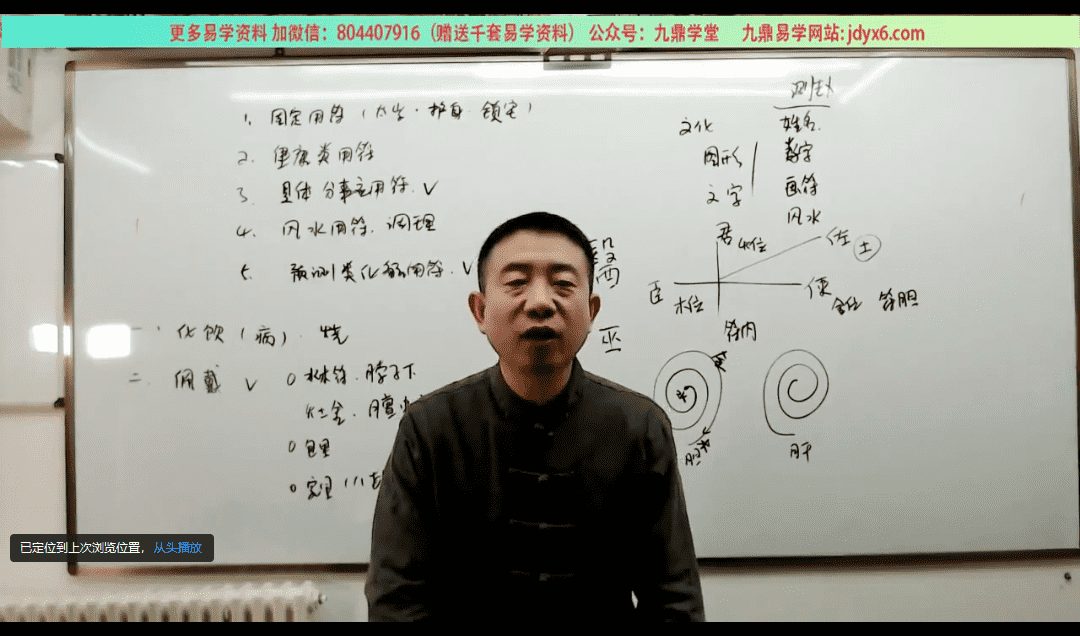 更多易学资料 加微信：804407916（赠送千套易学资料） 公众号：九鼎学堂 九鼎易学网站:jdyx6.com
1、固定用符（六尘·护身·镇宅）
2、健康类用符
3、具体分事应用符.V
4、风水用符.调理
5、预测类化解用符.V
一、化饮（病）.烧
二、佩戴 V
0 水木符.脖子下
0 包里
0 家里
文化
图形
文字
姓名
数字
画符
风水
君 火位
佐 土
臣 木位
使 金位 符胆
符内
巫
胆
肝
已定位到上次浏览位置，从头播放